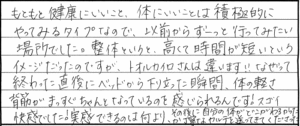 もともと健康にいいこと、体にいいことは積極的に
やってみるタイプなので、以前からずーっと行ってみたい
場所でした。整体というと、高くて時間が短いという
イメージだったのですが、トオルカイロさんは違います!!なぜって
終わった直後にベッドから下り立った瞬間、体の軽さ
背筋がまっすぐちゃんとなっているのを感じられるんです。スゴイ
快感でした。実感できるのは何より、その後に自分の体が